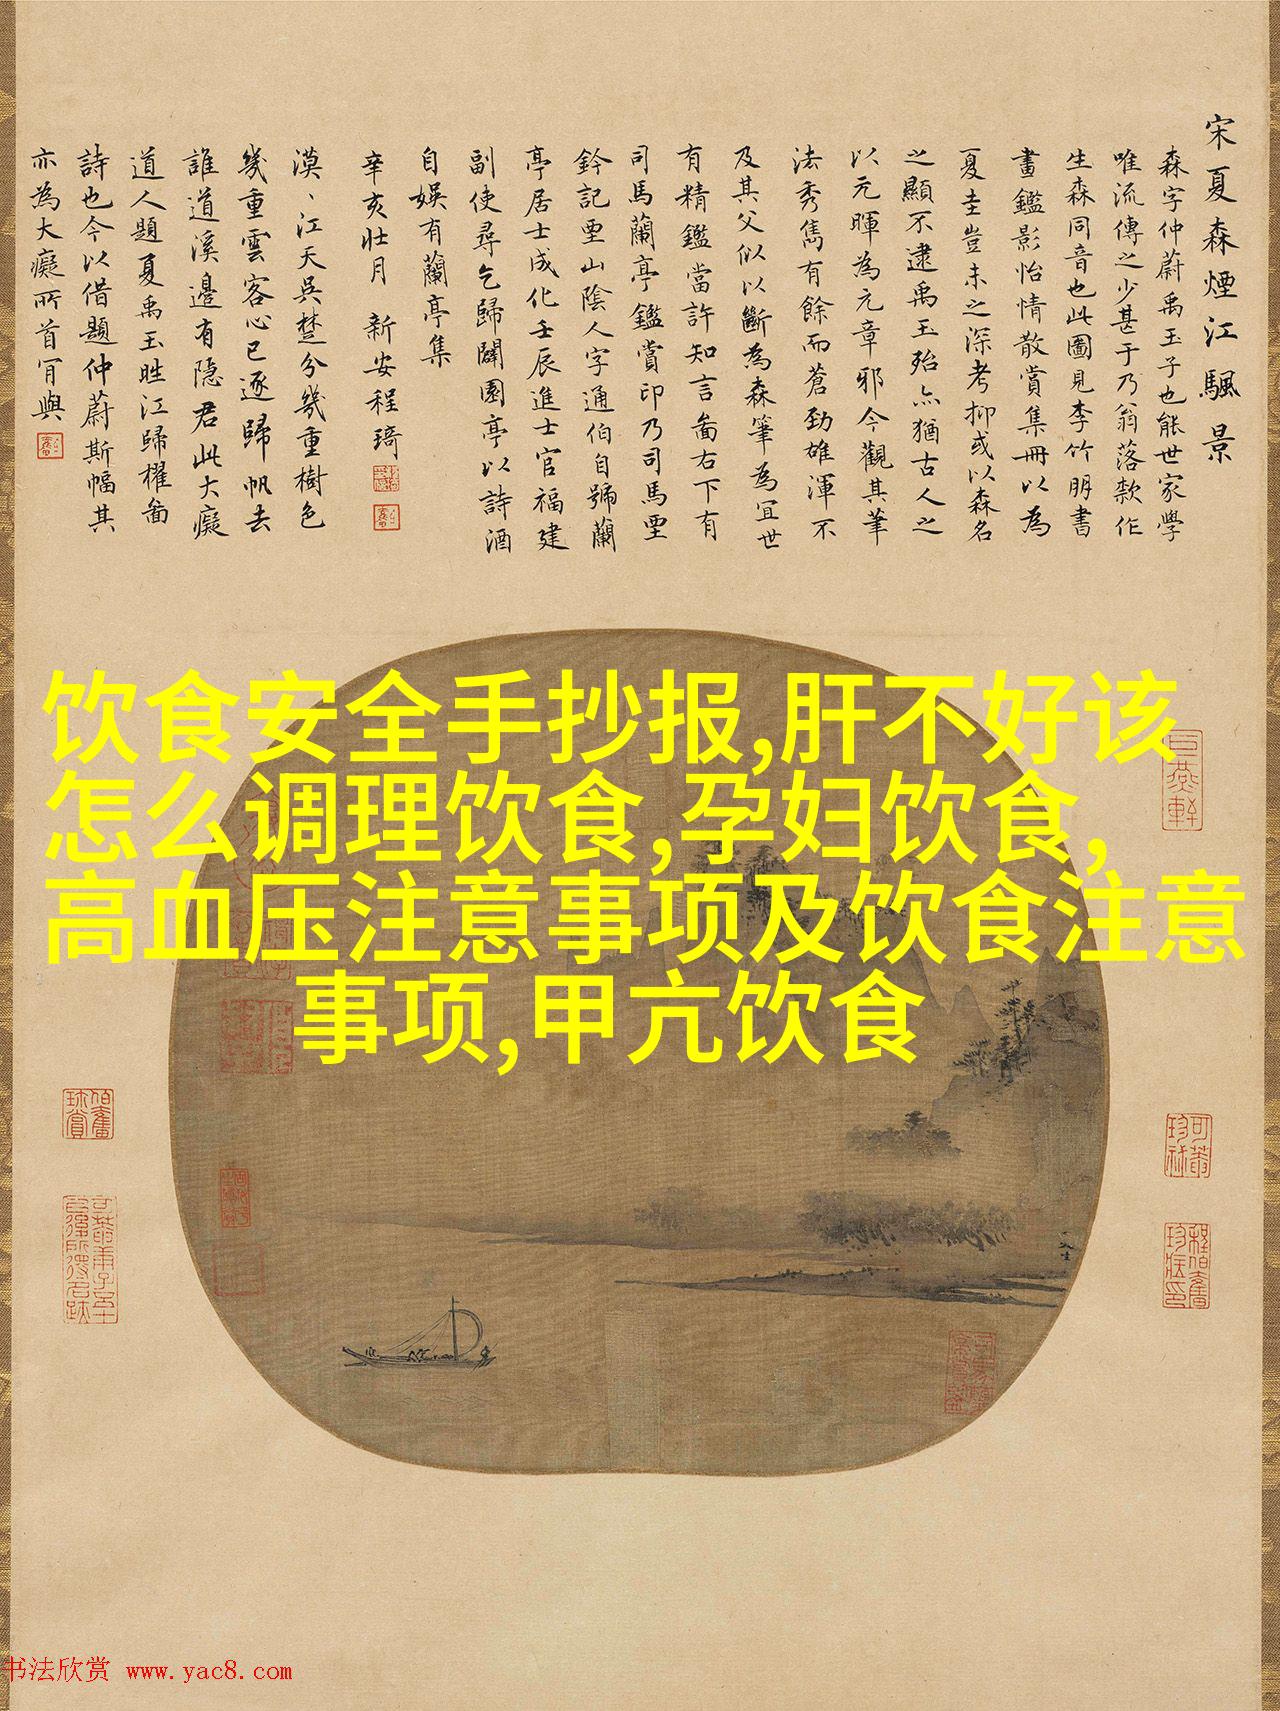 宋夏森煙江颿景
森字仲蔚禹玉子也能世家學
唯流傳之少甚于乃翁落款作
生森同音也此圖見李竹朋書
畫鑑影怡情散賞集冊以為
夏圭豈未之深考抑或以森名
之顯不逮禹玉殆亦猶古人之
以元暉為元章邪今觀其筆
法秀雋有餘而蒼勁雄渾不
及其父似以斷為森筆為宜世
有精鑑當許知言畫右下有
司馬蘭亭鑑賞印乃司馬垔
鈐記垔山陰人字通伯自號蘭
亭居士成化壬辰進士官福建
副使尋乞歸闢園亭以詩酒
自娛有蘭亭集
辛亥壯月 新安程琦
漠、江天吳楚分幾重樹色
幾重雲客心已逐歸帆去
誰道溪邊有隱君此大癡
道人題夏禹玉晴江歸櫂圖
詩也今以借題仲蔚斯幅其
亦為大癡所首肯與
饮食安全手抄报,肝不好该
怎么调理饮食,孕妇饮食,
高血压注意事项及饮食注意
事项,甲亢饮食
书法欣赏 www.yac8.com